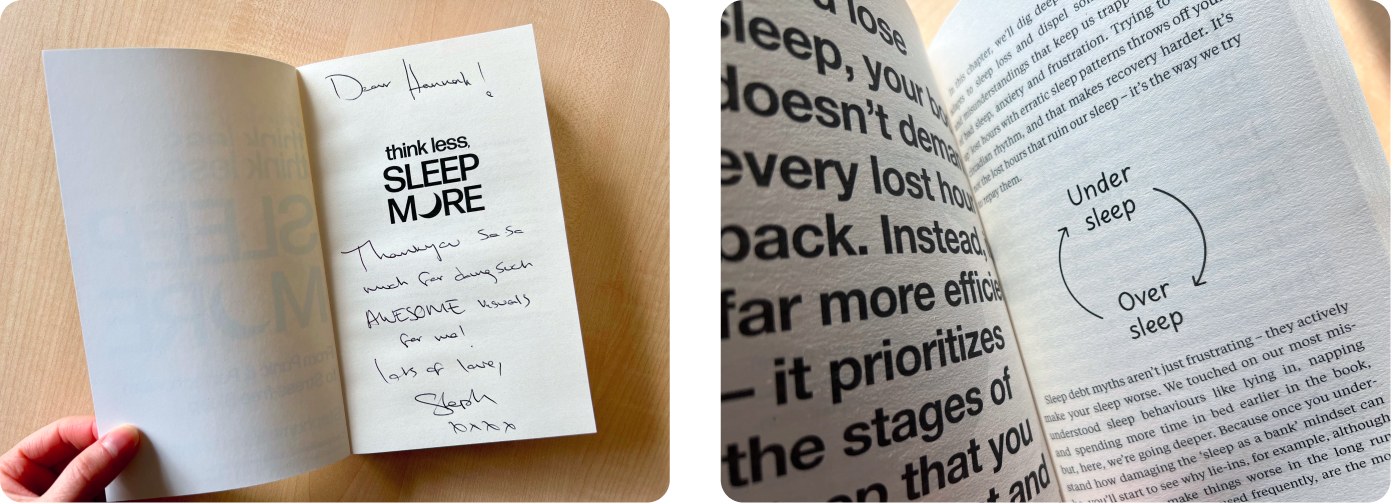 Dear Hannah!
think less,
SLEEP
MORE
Thankyou so so
much for doing such
AWESOME visuals
for me!
lots of love,
Steph
xxxx
lose
sleep, your
doesn't
every lost
back. Instead,
far more
– it prioritizes
the stages of
that you
and
this chapter, we'll dig
to sleep loss and dispel
misunderstandings that keep us
bad sleep, anxiety and frustration. Trying to
lost hours with erratic sleep patterns throws off
rhythm, and that makes recovery harder. It's
not the lost hours that ruin our sleep – it's the way we try
to repay them.
Under
sleep
Over
sleep
Sleep debt myths aren't just frustrating – they actively
make your sleep worse. We touched on our most mis-
understood sleep behaviours like lying in, napping
and spending more time in bed earlier in the book,
but, here, we're going deeper. Because once you under-
stand how damaging the 'sleep as a bank' mindset can
you'll start to see why lie-ins, for example, although
make things worse in the long run
used frequently, are the